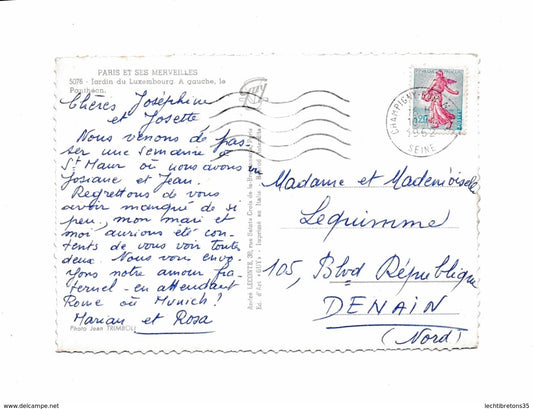 PARIS ET SES MERVEILLES
5078 - Jardin du Luxembourg. A gauche, le
Panthéon.
Chères Joséphine
et Josette
Nous venons de pas-
ser une semaine à
St Maur où nous avons vu
Josiane et Jean.
Regrettons de vous
avoir manqué de si
peu, mon mari et
moi, aurions été con-
tents de vous voir toutes
deux. Nous vous envo-
yons notre amour fra-
ternel - en attendant
Rome ou Munich!
Marian et Rosa
Photo Jean TRIMBOLI
André LECONTE, 38, rue Sainte-Croix-de-la-Bretonnerie
Ed. d'Art «GUY» - Imprimé en Italie
0,20
CHAMPIGNY-SUR-
SEINE
Madame et Mademoiselle
Lequimme
105, Blvd République
DENAIN
(Nord)
https://www.delcampe.net
lechtibretons35